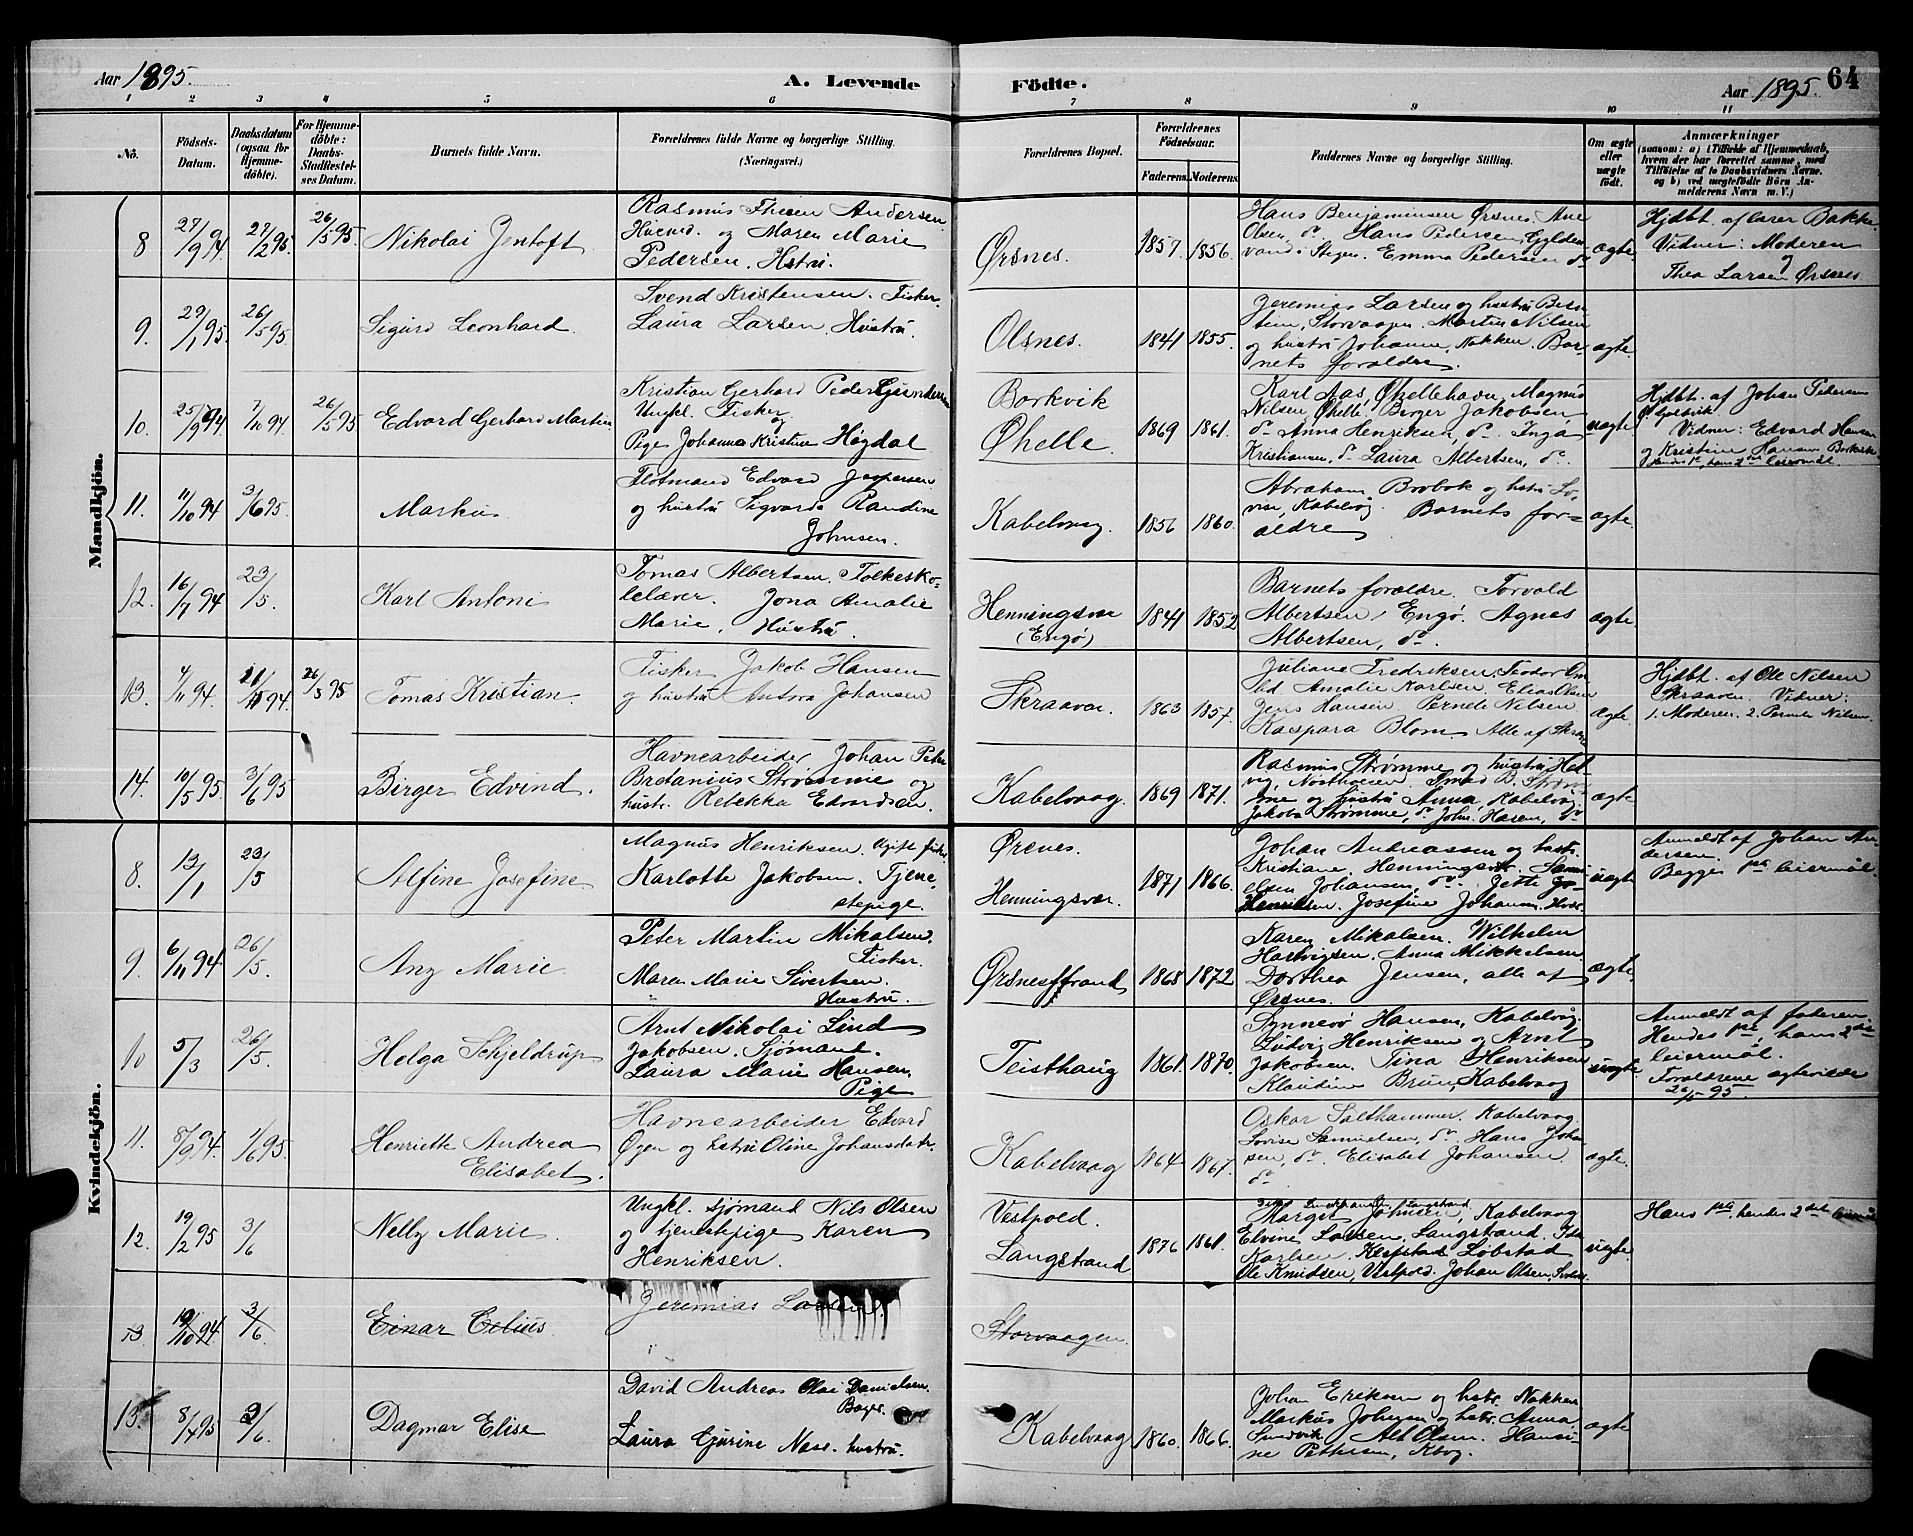 Aar 1895.
A. Levende
Födte.
Aar 1895.
64
1 2 3 4 5 6 7 8 9 10 11
No.
Födsels-
Datum.
Daabsdatum
(ogsaa for
Hjemme-
döbte).
For Hjemme-
döbte:
Daabs-
Stadfæstel-
ses Datum.
Barnets fulde Navn.
Forældrenes fulde Navne og borgerlige Stilling.
(Næringsvei.)
Forældrenes Bopæl.
Forældrenes
Födselsaar.
Faderens. Moderens.
Faddernes Navne og borgerlige Stilling.
Om ægte
eller
uægte
födt.
Anmærkninger
(saasom: a) i Tilfælde af Hjemmedaab,
hvem der har forrettet samme, med
Tilföielse af to Daabsvidners Navne,
og b) ved uægtefödte Börn An-
melderens Navn m. V.)
Mandkjön.
8 27/9 94 27/2 95. 26/5 95 Nikolai Jentoft
Rasmus Andersen
og Maren Marie
Pedersen. Hstru.
Ørsnes. 1857. 1856.
Hans Benjaminsen Ørsnes. Ane
Olsen, do Hans Pedersen, Gylden-
vand i Stegen. Emma Pedersen do
ægte
Hjdbt. af lærer Bakke.
Vidner: Moderen
og
Thea Larsen Ørsnes
9. 29/1 95. 26/5 95. Sigurd Leonhard.
Svend Kristensen. Fisker.
Laura Larsen. Hustru
Olsnes. 1841 1855.
Jeremias Larsen og hustru
Storvaagen. Martin Nilsen
og hustru Johanne, Nakken. Bar-
nets forældre.
ægte.
10. 25/9 94 7/10 94 26/5 95 Edvard Gerhard Martin
Kristian Gerhard Peder
Ungkl. Fisker
og
Pige Johanna Kristine Høgdal
Borkvik
Øhelle 1869 1861.
Karl Aas, Øhellehavn, Magnus
Nilsen Øhelle. Birger Jakobsen
do Anna Henriksen, do. Inga
Kristiansen, do Laura Albertsen, do.
uægte
Hjdbt. af Johan Pedersen
Vidner: Edvard Hansen
og Kristine Hansen Borkvik
11. 11/10 94 3/6 95. Markus
Edvard Jespersen
og hustru Sigvarda Randine
Johnsen.
Kabelvaag. 1856 1860.
Abraham og hstru Lo-
vise, Kabelvåg. Barnets for-
ældre
ægte
12. 16/7 94 23/5. Karl Antoni
Tomas Albertsen, Folkesko-
lelærer. Jona Amalie
Marie, Hustru.
Henningsvær
(Engø) 1841 1852
Barnets forældre. Torvald
Albertsen, Engø. Agnes
Albertsen, do
ægte.
13. 4/11 94. 21/11 94 26/5 95 Tomas Kristian
Fisker Jakob Hansen
og hustru Antora Johansen
Skraaven 1863 1857.
Juliane Fredriksen, Teodor
Amalie Karlsen. Elias Olsen
Jens Hansen. Pernele Nilsen
Kaspara Blom. Alle af
ægte
Hjdbt. af Ole Nilsen
Skraaven. Vidner:
1. Moderen. 2. Pernele Nilsen.
14. 10/5 95. 3/6 95 Birger Edvind.
Havnearbeider, Johan Peter
Bretanius Strømme og
hustr. Rebekka Edvardsen.
Kabelvaag. 1869 1871.
Rasmus Strømme og hustru
Smed B. Strøm-
me og hustru Anna, Kabelvåg.
Jakoba Strømme, do, John. Hasen, do
ægte
Kvindekjön.
8. 13/1 23/5 Alfine Josefine
Magnus Henriksen. Ugift fisker
Karlotte Jakobsen. Tjene-
stepige.
Ørsnes.
Henningsvær. 1871 1866.
Johan Andreassen og hustr.
Kristiane, Henningsvær.
Johansen, do. Jette
Henriksen. Josefine Johansen.
uægte
Anmeldt af Johan An-
dersen.
Begges 1ste leiermål.
9. 6/11 94 26/5. Any Marie.
Peter Martin Mikalsen.
Fisker.
Maren Marie Sivertsen.
Hustru.
Ørsnesstrand 1868 1872
Karen Mikalsen. Wilhelm
Hartvigsen. Anna Mikkelsen
Dorthea Jensen, alle af
Ørsnes.
ægte.
10 5/3 26/5. Helga Schjeldrup
Arnt Nikolai Lind
Jakobsen. Sjømand.
Laura Marie Hansen.
Pige
Teisthaug 1861. 1870.
Synnevø Hansen, Kabelvåg.
Ludvig Henriksen og Arnt
Jakobsen. Tina Henriksen
Klaudine Brun, Kabelvaag
uægte
Anmeldt af faderen.
Hendes 1ste, hans 2det
leiermål.
Forældrene ægteviede
26/5 95.
11. 8/9 94. 1/6 95. Henriette Andrea
Elisabet.
Havnearbeider Edvard
Øyen og hstru Oline Johansdatr.
Kabelvaag 1864 1867.
Oskar Salthammer. Kabelvaag
Lovise Samuelsen, do. Hans Johan-
sen, do. Elisabet Johansen.
do
ægte.
12. 19/2 95 3/6 Nelly Marie.
Ungkl. sjømand Nils Olsen
og tjenestepige Karen
Henriksen.
Vestpold.
Langstrand 1876 1861.
Margit Johnsen, Kabelvaag
Elvine Larsen, Langstrand. Ida
Karlsen, Løbstad
Ole Knudsen, Vestpold. Johan Olsen,
uægte
Hans 1ste, hendes 2det leiermål
13 19/10 94 3/6 Einar Celius.
Jeremias Larsen.
Storvaagen.
13. 8/4 95 2/6 Dagmar Elise
David Andreas Olai Danielsen.
Bager.
Laura Gjurine Næss. hustru.
Kabelvaag 1860. 1866.
Johan Eriksen og hstr. Nakken
Markus Johnsen og hstr. Anna
Sundvik Alt Olsen. Hansi-
ne Pettersen, Kbvg.
ægte